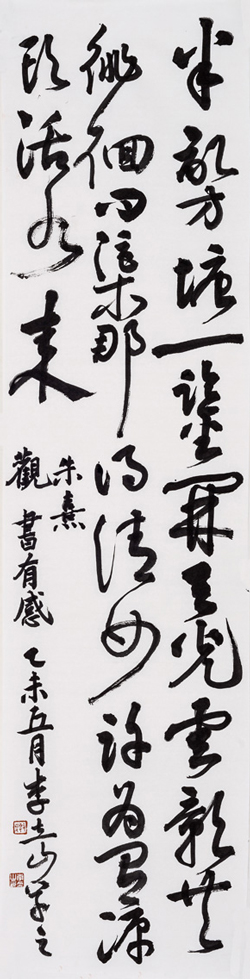 半畝方塘一鑒開天光雲影共
徘徊問渠那得清如許為有源
頭活水來
朱熹
觀書有感 乙未五月李立山